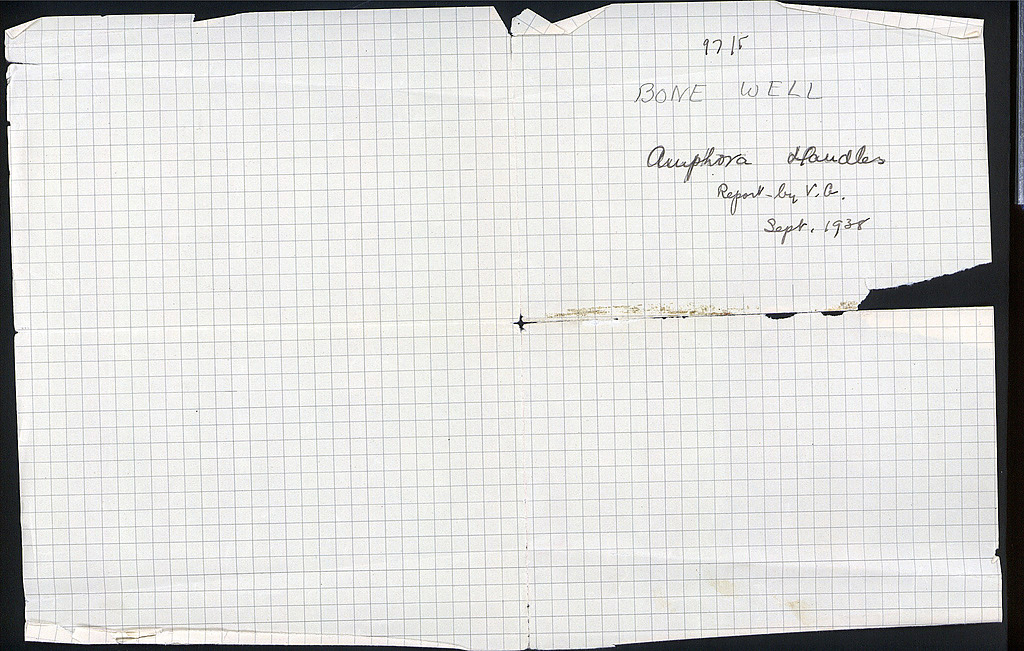 BONE WELL
Amphora Handles
Report by V. G.
Sept. 1938